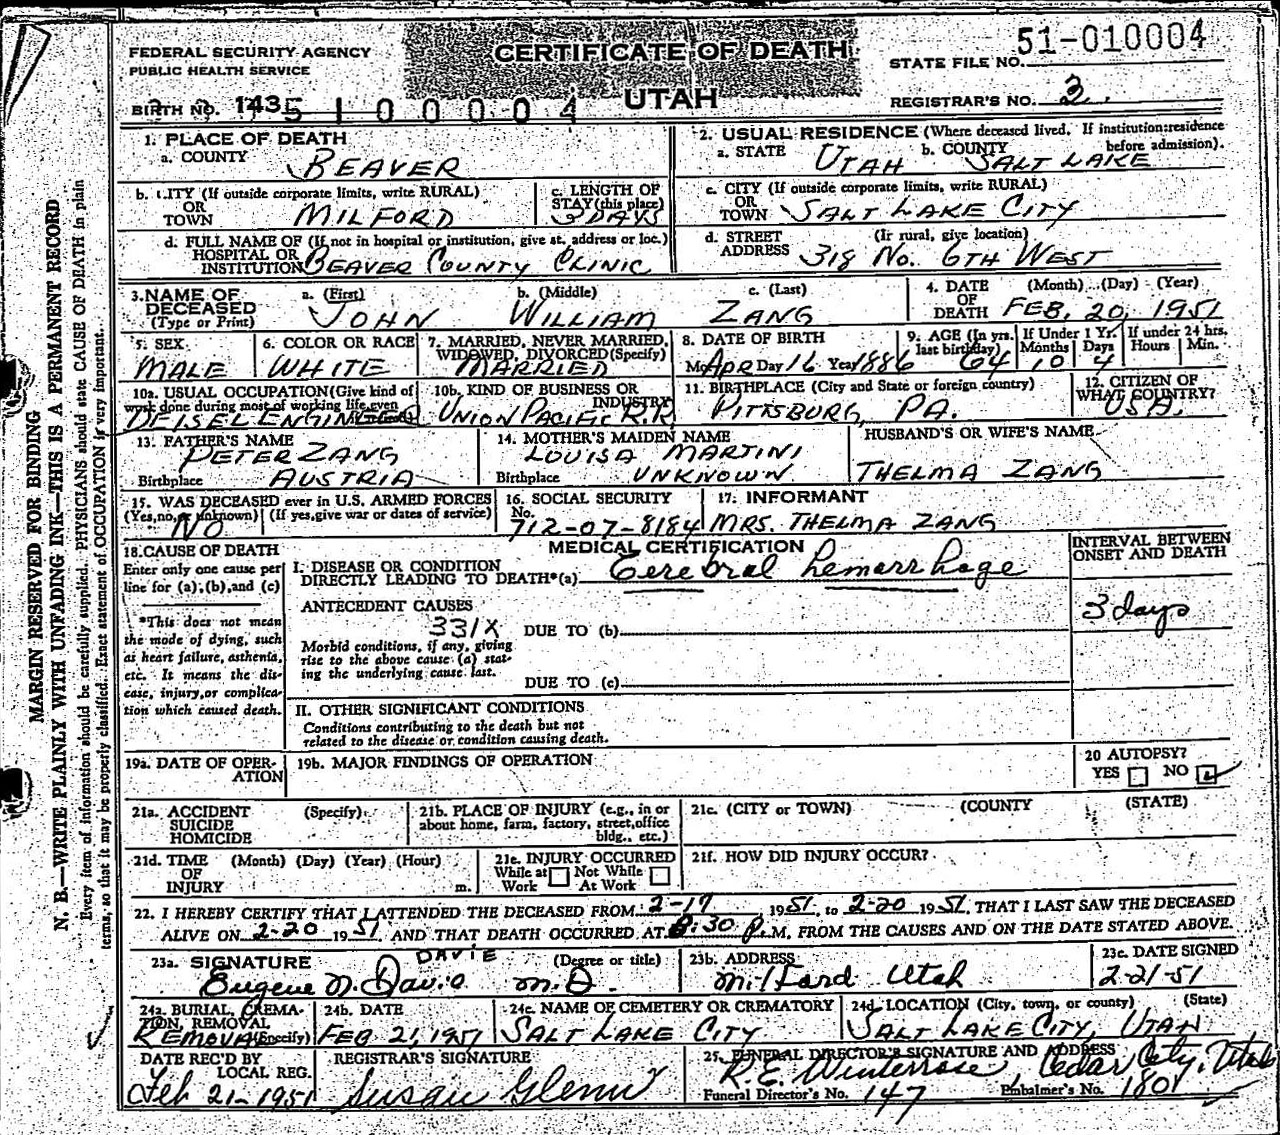 FEDERAL SECURITY AGENCY
PUBLIC HEALTH SERVICE
CERTIFICATE OF DEATH
UTAH
51-010004
STATE FILE NO.
REGISTRAR'S NO. 2
BIRTH NO. 143 5 1 0 0 0 0 4
MARGIN RESERVED FOR BINDING
N. B.—WRITE PLAINLY WITH UNFADING INK—THIS IS A PERMANENT RECORD
Every item of information should be carefully supplied. PHYSICIANS should state CAUSE OF DEATH in plain
terms, so that it may be properly classified. Exact statement of OCCUPATION is very important.
1. PLACE OF DEATH
a. COUNTY BEAVER
2. USUAL RESIDENCE (Where deceased lived. If institution: residence before admission).
a. STATE UTAH b. COUNTY SALT LAKE
b. CITY (If outside corporate limits, write RURAL) OR TOWN MILFORD
c. LENGTH OF STAY (this place) 3 DAYS
c. CITY (If outside corporate limits, write RURAL) OR TOWN SALT LAKE CITY
d. FULL NAME OF (If not in hospital or institution, give st. address or loc.) HOSPITAL OR INSTITUTION BEAVER COUNTY CLINIC
d. STREET ADDRESS (If rural, give location) 318 NO. 6TH WEST
3. NAME OF DECEASED (Type or Print)
a. (First) JOHN b. (Middle) WILLIAM c. (Last) ZANG
4. DATE OF DEATH (Month) (Day) (Year) FEB. 20, 1951
5. SEX MALE
6. COLOR OR RACE WHITE
7. MARRIED, NEVER MARRIED, WIDOWED, DIVORCED (Specify) MARRIED
8. DATE OF BIRTH Mo APR Day 16 Year 1886
9. AGE (In yrs. last birthday) 64 If Under 1 Yr. Months 10 Days 4 If under 24 hrs. Hours Min.
10a. USUAL OCCUPATION (Give kind of work done during most of working life, even DEISEL ENGINEER
10b. KIND OF BUSINESS OR INDUSTRY UNION PACIFIC R.R.
11. BIRTHPLACE (City and State or foreign country) PITTSBURG, PA.
12. CITIZEN OF WHAT COUNTRY? USA.
13. FATHER'S NAME PETER ZANG
Birthplace AUSTRIA
14. MOTHER'S MAIDEN NAME LOUISA MARTINI
Birthplace UNKNOWN
HUSBAND'S OR WIFE'S NAME
THELMA ZANG
15. WAS DECEASED ever in U.S. ARMED FORCES
(Yes, no, or unknown) (If yes, give war or dates of service) NO
16. SOCIAL SECURITY No. 712-07-8184
17. INFORMANT MRS. THELMA ZANG
18. CAUSE OF DEATH
Enter only one cause per line for (a), (b), and (c)
*This does not mean the mode of dying, such as heart failure, asthenia, etc. It means the disease, injury, or complication which caused death.
MEDICAL CERTIFICATION
INTERVAL BETWEEN ONSET AND DEATH
I. DISEASE OR CONDITION
DIRECTLY LEADING TO DEATH*(a) Cerebral hemorrhage
3 days
ANTECEDENT CAUSES
331X DUE TO (b)
Morbid conditions, if any, giving rise to the above cause (a) stating the underlying cause last.
DUE TO (c)
II. OTHER SIGNIFICANT CONDITIONS
Conditions contributing to the death but not
related to the disease or condition causing death.
19a. DATE OF OPERATION
19b. MAJOR FINDINGS OF OPERATION
20 AUTOPSY?
YES NO ✓
21a. ACCIDENT SUICIDE HOMICIDE (Specify)
21b. PLACE OF INJURY (e.g., in or about home, farm, factory, street, office bldg., etc.)
21c. (CITY or TOWN) (COUNTY (STATE)
21d. TIME OF INJURY (Month) (Day) (Year) (Hour) m.
21e. INJURY OCCURRED While at Work Not While At Work
21f. HOW DID INJURY OCCUR?
22. I HEREBY CERTIFY THAT I ATTENDED THE DECEASED FROM 2-17 1951, to 2-20 1951, THAT I LAST SAW THE DECEASED
ALIVE ON 2-20 1951 AND THAT DEATH OCCURRED AT 8:30 P.M, FROM THE CAUSES AND ON THE DATE STATED ABOVE.
23a. SIGNATURE DAVIE (Degree or title)
Eugene N. Davie M.D.
23b. ADDRESS Milford Utah
23c. DATE SIGNED 2-21-51
24a. BURIAL, CREMATION, REMOVAL (Specify) REMOVAL
24b. DATE FEB 21, 1951
24c. NAME OF CEMETERY OR CREMATORY SALT LAKE CITY
24d. LOCATION (City, town, or county) (State) SALT LAKE CITY, UTAH
DATE REC'D BY LOCAL REG. Feb 21-1951
REGISTRAR'S SIGNATURE Susan Glenn
25. FUNERAL DIRECTOR'S SIGNATURE AND ADDRESS
R.E. Winterrose, Cedar City, Utah
Funeral Director's No. 147 Embalmer's No. 1801